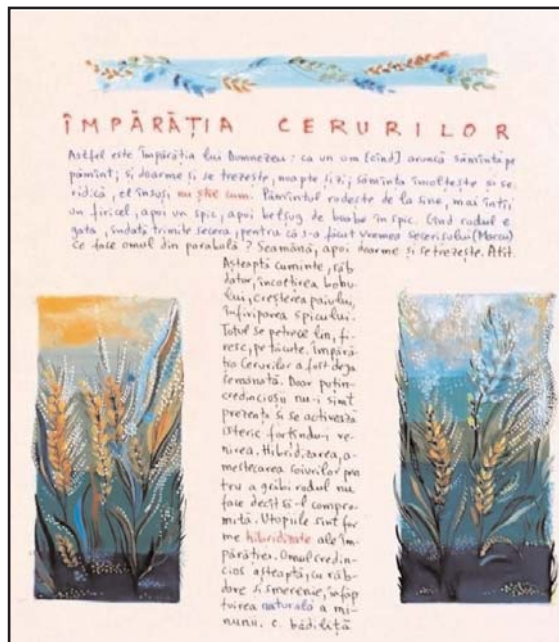 ÎMPĂRĂȚIA CERURILOR
Astfel este Împărăția lui Dumnezeu: ca un om [cînd] aruncă sămînța pe
pămînt; și doarme și se trezește, noapte și zi; sămînța încolțește și se
ridică, el însuși nu știe cum. Pămîntul rodește de la sine, mai întîi
un firicel, apoi un spic, apoi belșug de boabe în spic. Cînd rodul e
gata, îndată trimite secera, pentru că s-a făcut vremea secerișului (Marcu)
Ce face omul din parabolă? Seamănă, apoi doarme și se trezește. Atît.
Așteaptă cuminte, răb
dător, încolțirea bobu
lui, creșterea paiului,
înfiriparea spicului.
Totul se petrece lin, fi
resc, pe tăcute. Împără
ția Cerurilor a fost deja
semănată. Doar puțin
credincioșii nu-i simt
prezența și se activează
isteric forțîndu-i ve
nirea. Hibridizarea, a-
mestecarea soiurilor pen
tru a grăbi rodul nu
face decît să-l compro
mită. Utopiile sînt for
me hibridizate ale Îm
părăției. Omul credin
cios așteaptă, cu răb
dare și smerenie, înfăp
tuirea naturală a mi
nunii. c. bădiliță